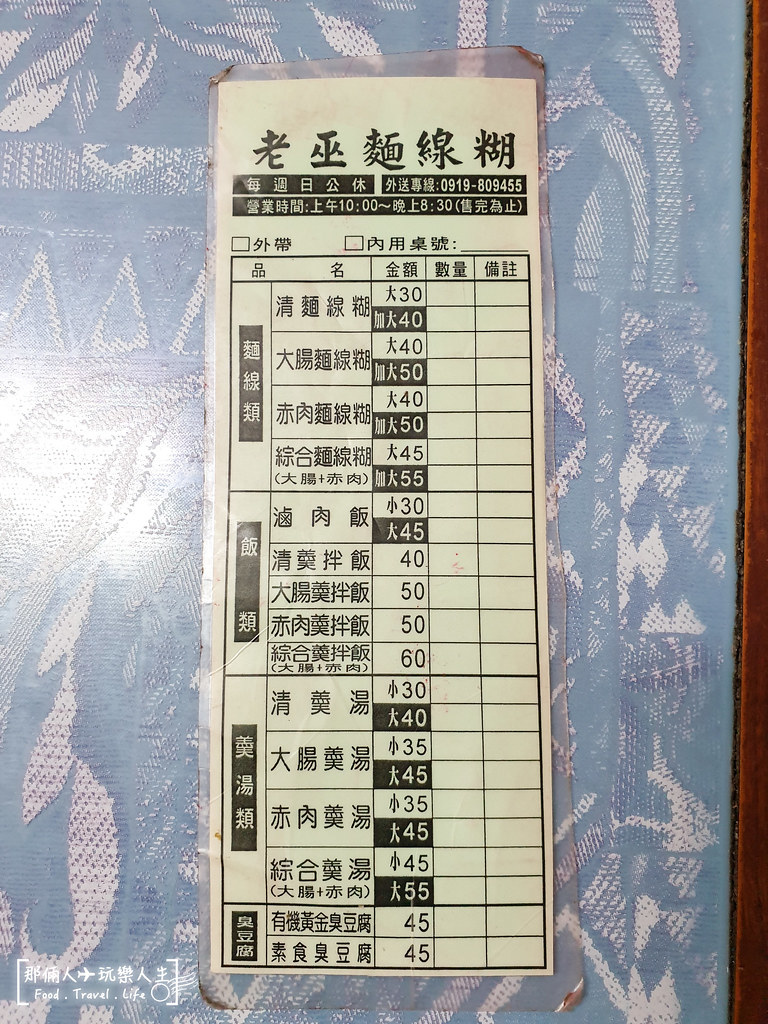 老巫麵線糊
每週日公休 外送專線:0919-809455
營業時間:上午10:00～晚上8:30(售完為止)
□外帶 □內用桌號:
品名 金額 數量 備註
麵線類
清麵線糊 大30
加大40
大腸麵線糊 大40
加大50
赤肉麵線糊 大40
加大50
綜合麵線糊 大45
(大腸+赤肉) 加大55
飯類
滷肉飯 小30
大45
清羹拌飯 40
大腸羹拌飯 50
赤肉羹拌飯 50
綜合羹拌飯 60
(大腸+赤肉)
羹湯類
清羹湯 小30
大40
大腸羹湯 小35
大45
赤肉羹湯 小35
大45
綜合羹湯 小45
(大腸+赤肉) 大55
臭豆腐
有機黃金臭豆腐 45
素食臭豆腐 45
那倆人玩樂人生
Food.Travel.Life